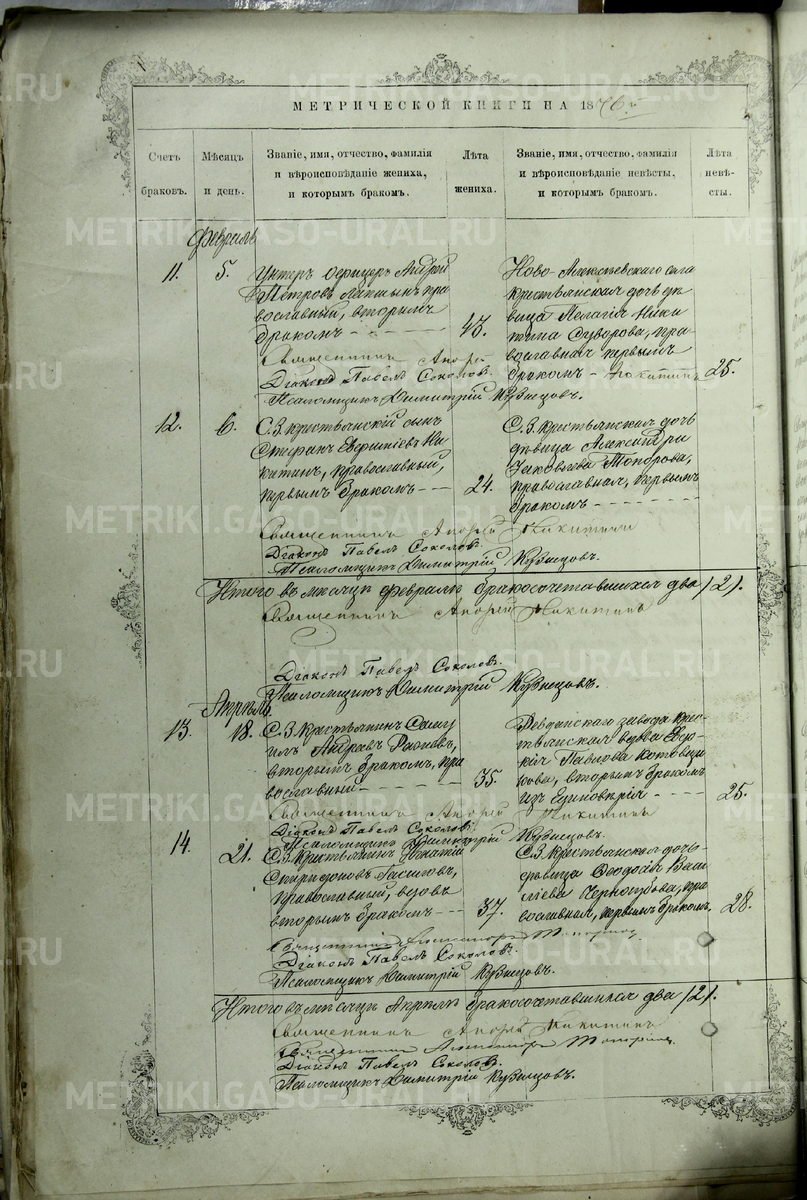 МЕТРИЧЕСКОЙ КНИГИ НА 1876 г.
Счетъ браковъ.
Мѣсяцъ и день.
Званіе, имя, отчество, фамилія
и вѣроисповѣданіе жениха,
и которымъ бракомъ.
Лѣта жениха.
Званіе, имя, отчество, фамилія
и вѣроисповѣданіе невѣсты,
и которымъ бракомъ.
Лѣта невѣсты.
Февраль
11. 5.
Унтеръ офицеръ Андрей
Петровъ пра
вославный, вторымъ
бракомъ
Ново-Алексѣевскаго села
крестьянская дочь дѣ
вица Пелагія Ники
тина Суворова, пра
вославная первымъ
бракомъ
25.
Священникъ Андрей Никитинъ
Діаконъ Павелъ Соколовъ.
Псаломщикъ Димитрій Кузнецовъ.
12. 6.
С.З. крестьянскій сынъ
Стефанъ Ни
китинъ, православный,
первымъ бракомъ
24.
С.З. крестьянская дочь
дѣвица Александра
Яковлева Топорова,
православная, первымъ
бракомъ
Священникъ Андрей Никитинъ
Діаконъ Павелъ Соколовъ.
Псаломщикъ Димитрій Кузнецовъ.
Итого въ мѣсяцѣ февралѣ бракосочетавшихся два /2/.
Священникъ Андрей Никитинъ
Діаконъ Павелъ Соколовъ.
Псаломщикъ Димитрій Кузнецовъ.
Апрѣль
13. 18.
С.З. крестьянинъ Саму
илъ Андреевъ
вторымъ бракомъ, пра
вославный
35.
Ревдинскаго завода крес
тьянская вдова
Павлова
вторымъ бракомъ
изъ Единовѣрія
25.
Священникъ Андрей Никитинъ
Діаконъ Павелъ Соколовъ.
Псаломщикъ Димитрій Кузнецовъ.
14. 21.
С.З. крестьянинъ Игнатій
Спиридоновъ
православный, вдовъ
вторымъ бракомъ
37.
С.З. крестьянская дочь
дѣвица Ѳеодосія Васи
лієва Черногубова, пра
вославная, первымъ бракомъ,
28.
Священникъ Александръ Топорковъ
Діаконъ Павелъ Соколовъ.
Псаломщикъ Димитрій Кузнецовъ.
Итого въ мѣсяцѣ Апрѣлѣ бракосочетавшихся два /2/.
Священникъ Андрей Никитинъ
Священникъ Александръ Топорковъ
Діаконъ Павелъ Соколовъ.
Псаломщикъ Димитрій Кузнецовъ.
METRIKI.GASO-URAL.RU